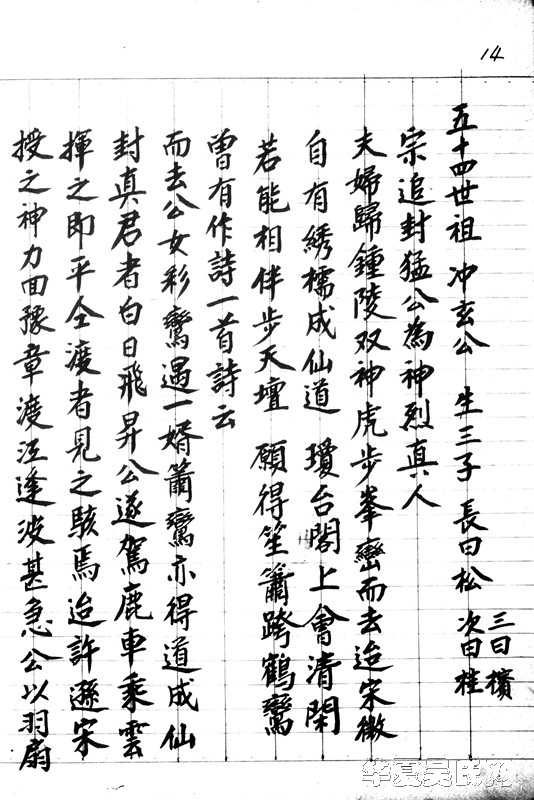 14
授之神力回豫章渡江逢波甚急公以羽扇
揮之即平仝渡者見之駭焉迨許遜宋
封真君者白日飛昇公遂駕鹿車乘雲
而去公女彩鸞遇一婿簫鸞亦得道成仙
曾有作詩一首詩云
若能相伴步天壇 願得笙簫跨鶴鸞
自有綉襦成仙道 瓊台閣上會清閑
夫婦歸鍾陵双神虎步峯巒而去迨宋徽
宗追封猛公為神烈真人
五十四世祖 冲玄公 生三子 長曰松 次曰桂 三曰檳
华夏吴氏网